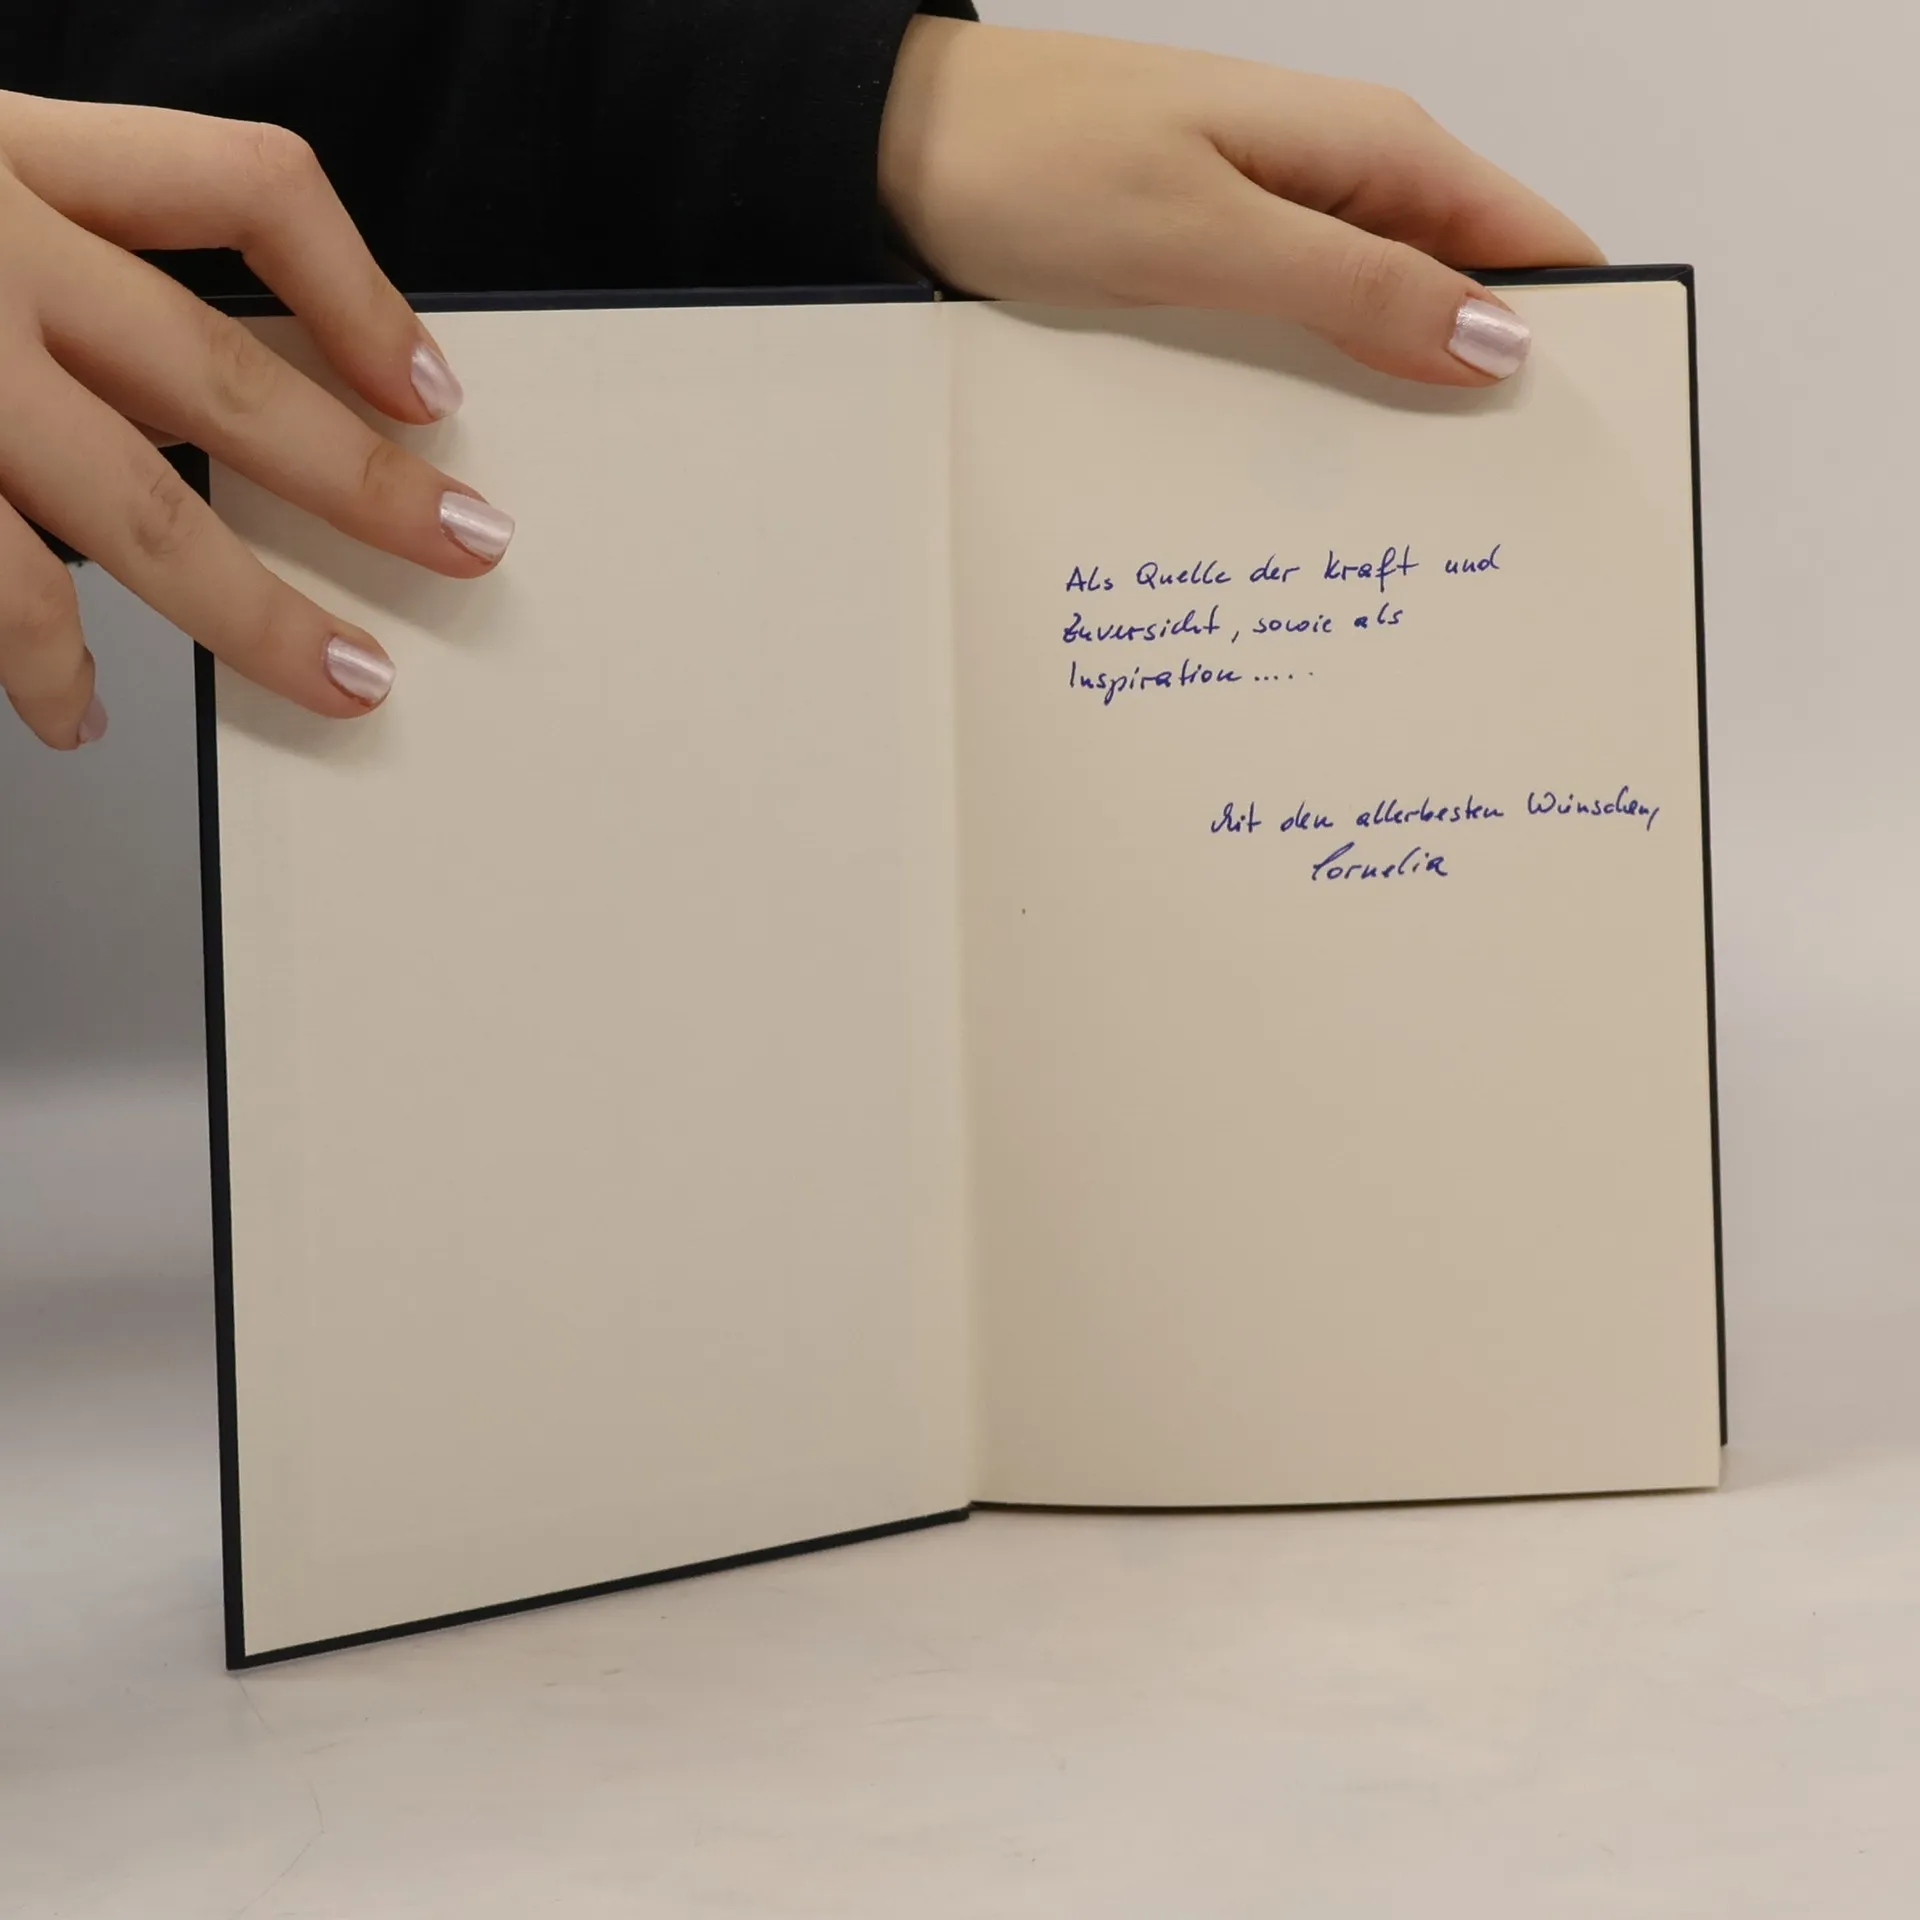 Als Quelle der Kraft und
Zuversicht, sowie als
Inspiration.....
Mit den allerbesten Wünschen,
Cornelia